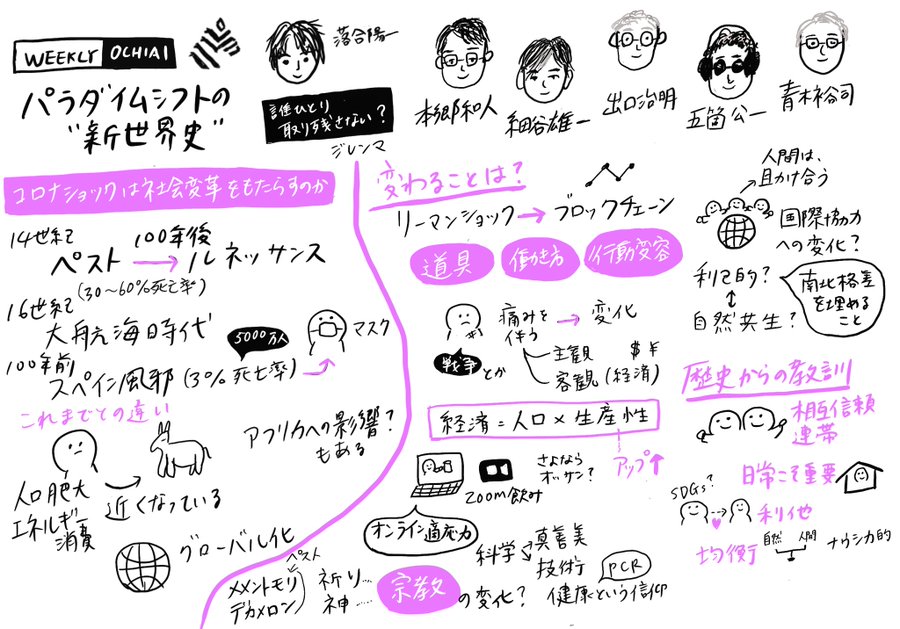 WEEKLY OCHIAI
パラダイムシフトの
"新世界史"
落合陽一
誰ひとり
取り残さない?
ジレンマ
本郷和人
細谷雄一
出口治明
五箇公一
青木裕司
コロナショックは社会変革をもたらすのか
14世紀
100年後
ペスト → ルネッサンス
(30~60%死亡率)
16世紀
大航海時代
5000万人
マスク
100年前
スペイン風邪 (3%死亡率)
これまでとの違い
アフリカへの影響?
もある
人口肥大
エネルギー
消費
近くなっている
グローバル化
変わることは?
リーマンショック → ブロックチェーン
道具
働き方
行動変容
痛みを
伴う → 変化
戦争 とか
主観
$ ¥
客観 (経済)
経済 = 人口 × 生産性
アップ↑
さよなら
オッサン?
ZOOM飲み
オンライン適応力
ペスト
メメントモリ
デカメロン
祈り…
神…
宗教 の変化?
科学
真善美
技術
PCR
健康という信仰
人間は、
助け合う
国際協力
への変化?
利己的?
↕
自然共生?
南北格差
を埋める
こと
歴史からの教訓
相互信頼
連帯
日常こそ重要
SDGs?
利他
均衡
自然 人間
ナウシカ的